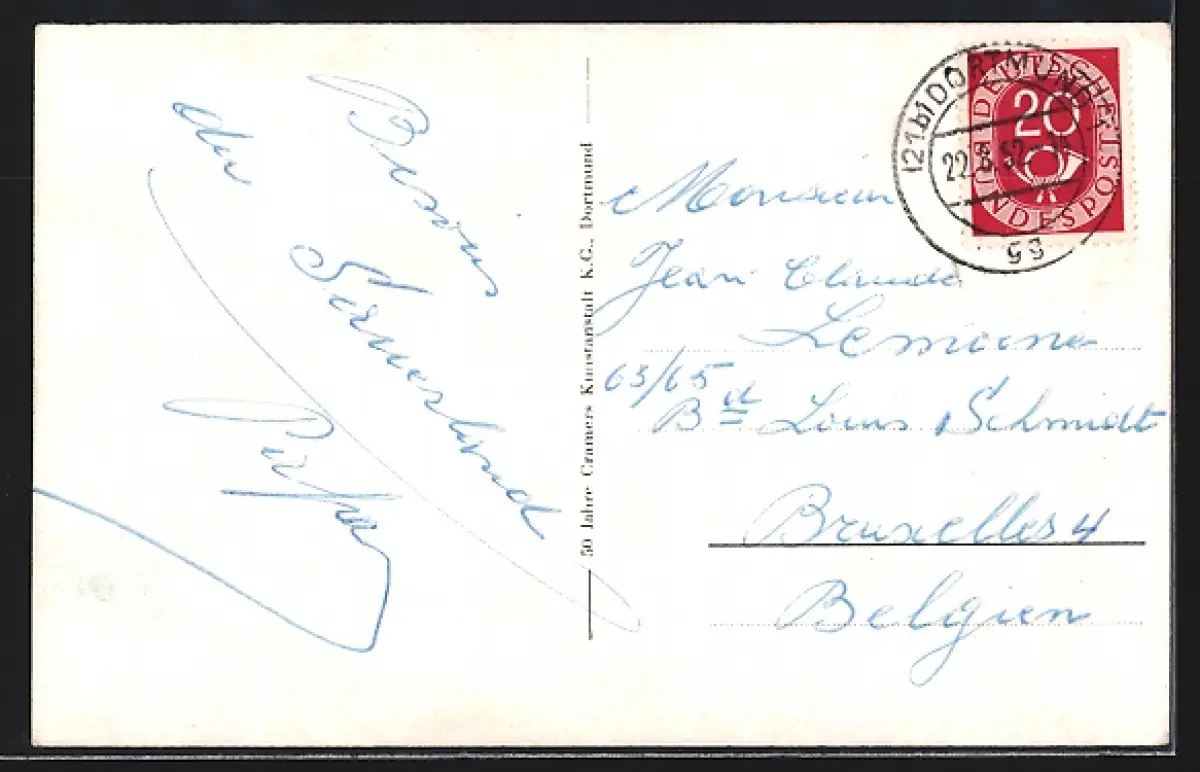 Bisous
du Sauerland
Papa
50 Jahre Cramers Kunstanstalt K.G., Dortmund
(21b) DORTMUND
22.8.52
gg
DEUTSCHE BUNDESPOST
20
Monsieur
Jean Claude
Lemoine
63/65
Bd Louis Schmidt
Bruxelles 4
Belgien